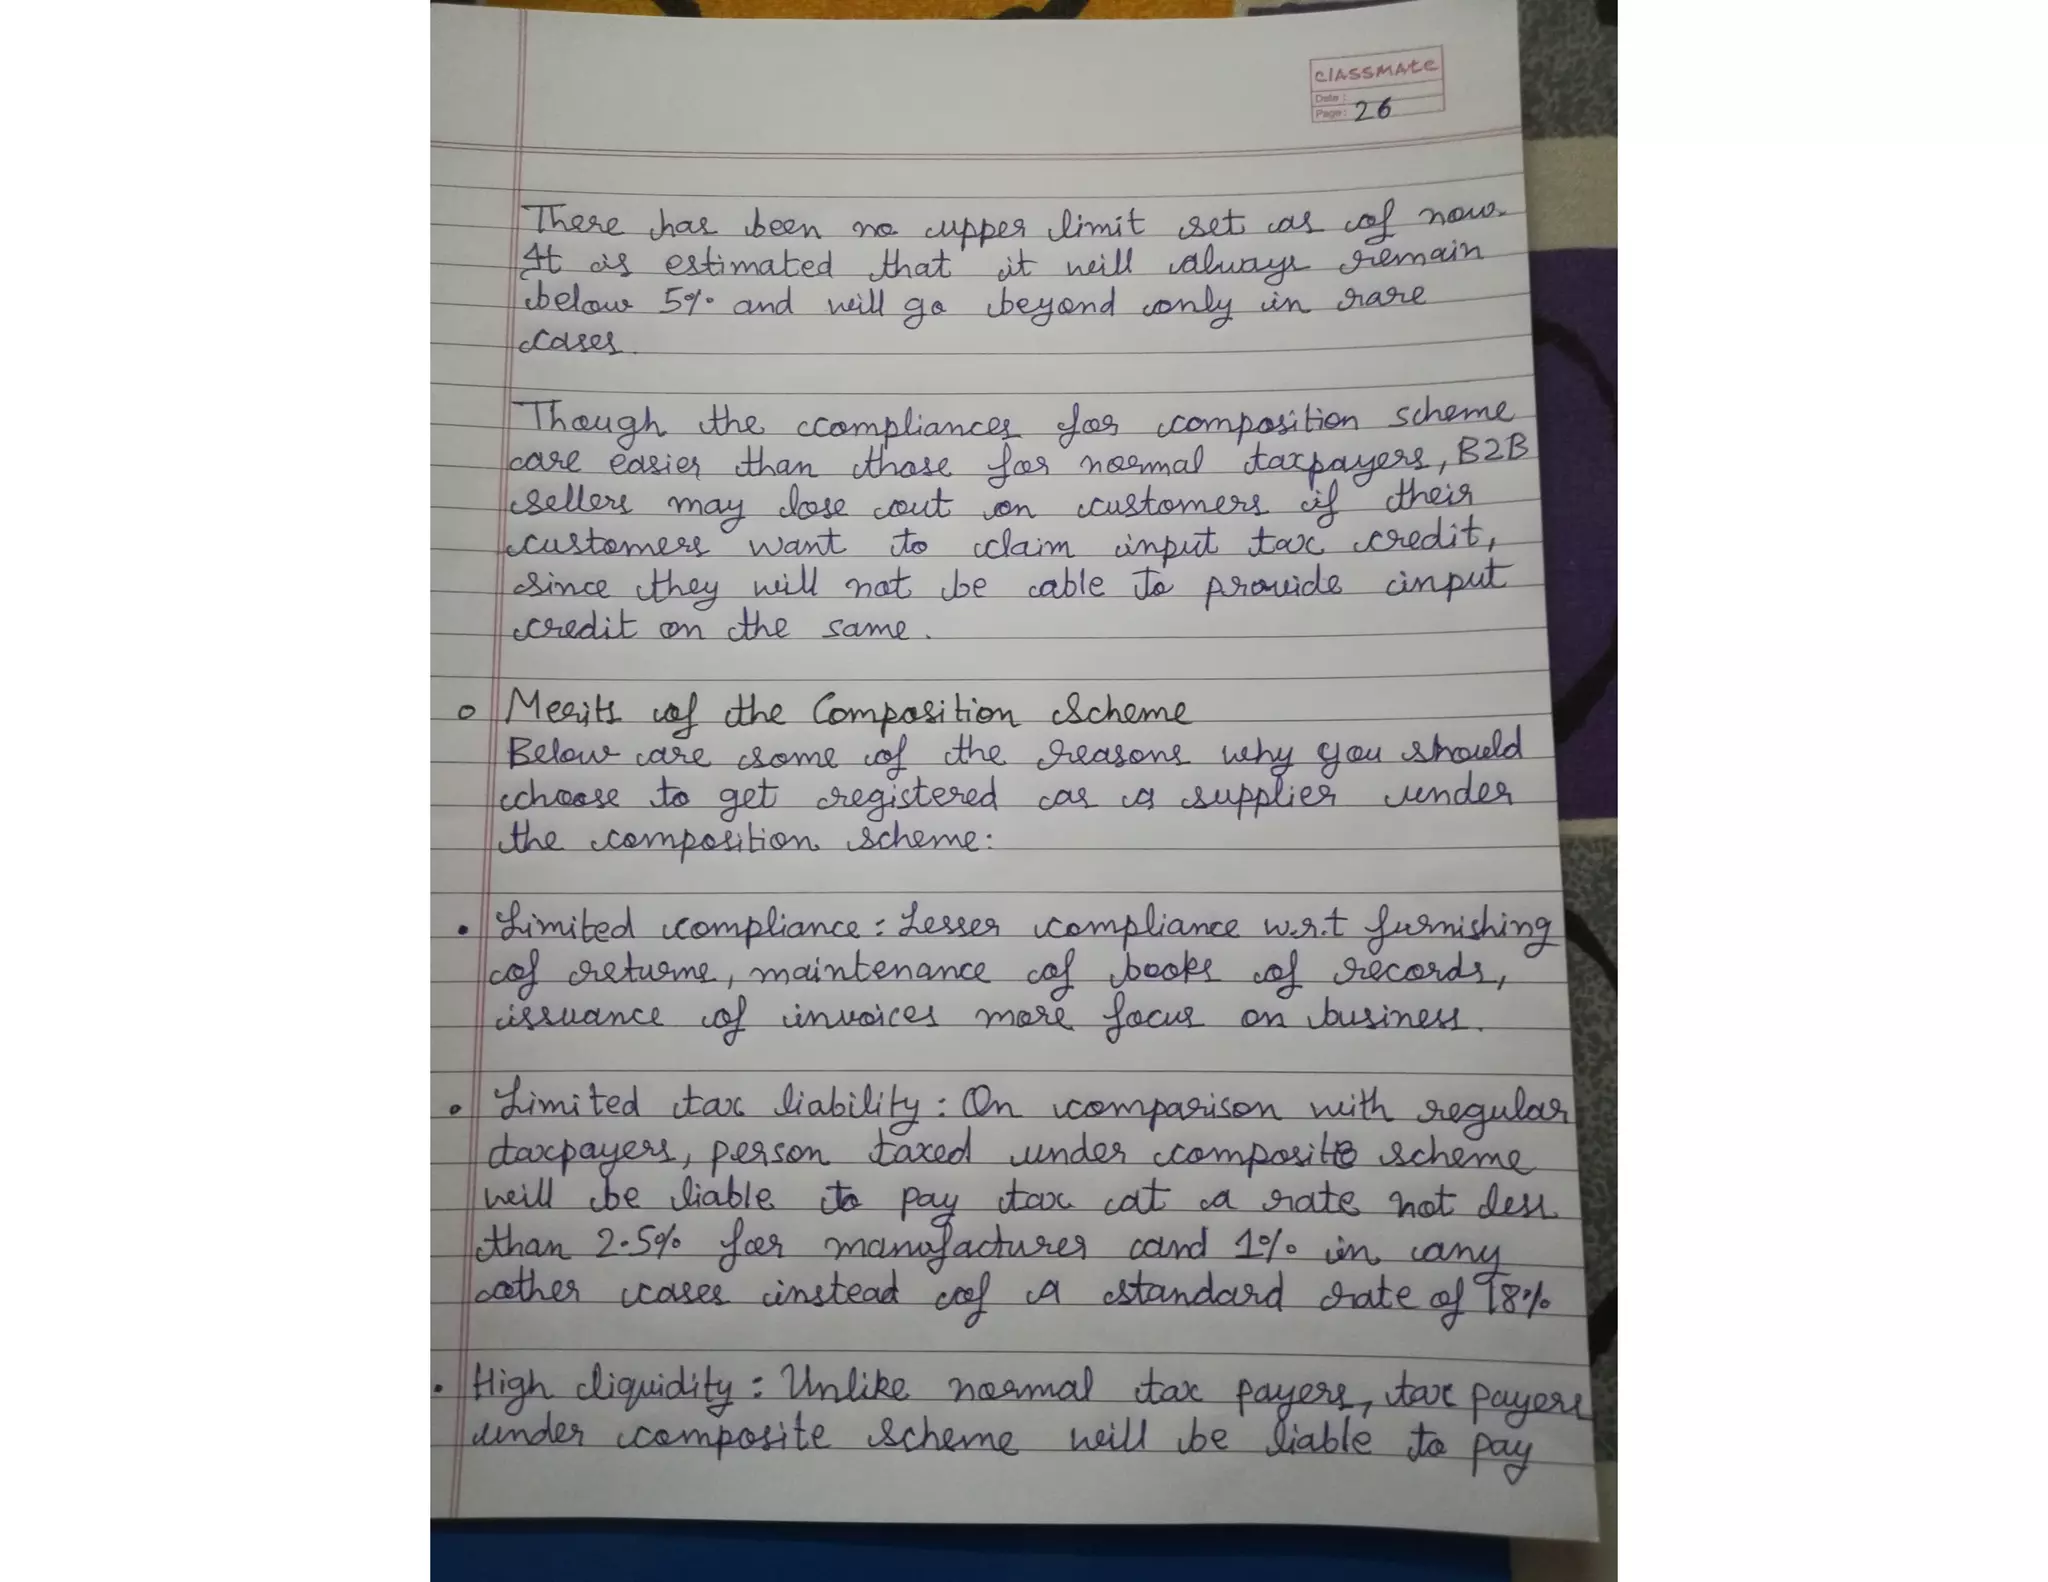 CLASSMATE
Date :
Page : 26
There has been no upper limit set as of now.
It is estimated that it will always remain
below 5% and will go beyond only in rare
cases.
Though the compliances for composition scheme
are easier than those for normal taxpayers, B2B
sellers may lose out on customers if their
customers want to claim input tax credit,
since they will not be able to provide input
credit on the same.
o Merits of the Composition Scheme
Below are some of the reasons why you should
choose to get registered as a supplier under
the composition scheme:
• Limited compliance: Lesser compliance w.r.t furnishing
of returns, maintenance of books of records,
issuance of invoices more focus on business.
• Limited tax liability: On comparison with regular
taxpayers, person taxed under composite scheme
will be liable to pay tax at a rate not less
than 2.5% for manufacturer and 1% in any
other cases instead of a standard rate of 18%
• High liquidity: Unlike normal tax payers, tax payers
under composite scheme will be liable to pay